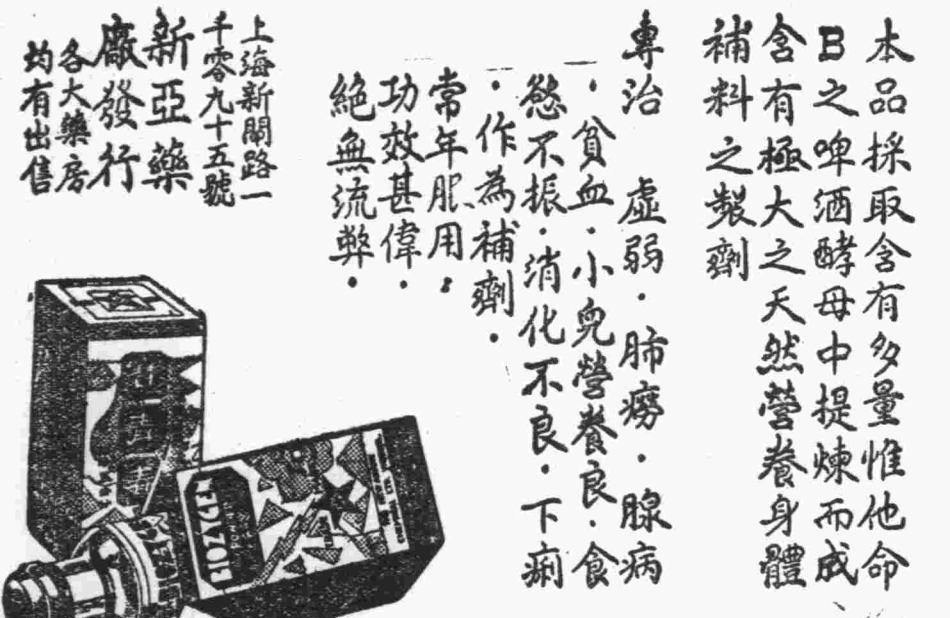 本品採取含有多量惟他命
B之啤酒酵母中提煉而成
含有極大之天然營養身體
補料之製劑
專治　虛弱．肺癆．腺病
．貧血．小兒營養良．食
慾不振．消化不良．下痢
．作為補劑．
常年服用．
功效甚偉．
絕無流弊．
上海新閘路一
千零九十五號
新亞藥
廠發行
各大藥房
均有出售